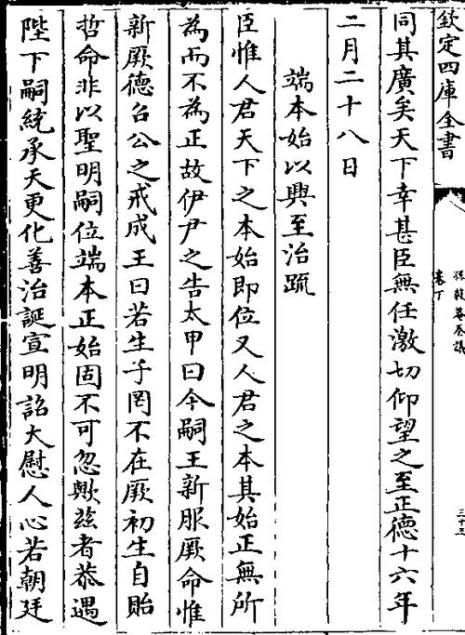 欽定四庫全書
卷丁
三十三
同其廣矣天下幸甚臣無任激切仰望之至正德十六年
二月二十八日
端本始以興至治疏
臣惟人君天下之本始即位又人君之本其始正無所
為而不為正故伊尹之告太甲曰今嗣王新服厥命惟
新厥德召公之戒成王曰若生子罔不在厥初生自貽
哲命非以聖明嗣位端本正始固不可忽歟兹者恭遇
陛下嗣統承天更化善治誕宣明詔大慰人心若朝廷